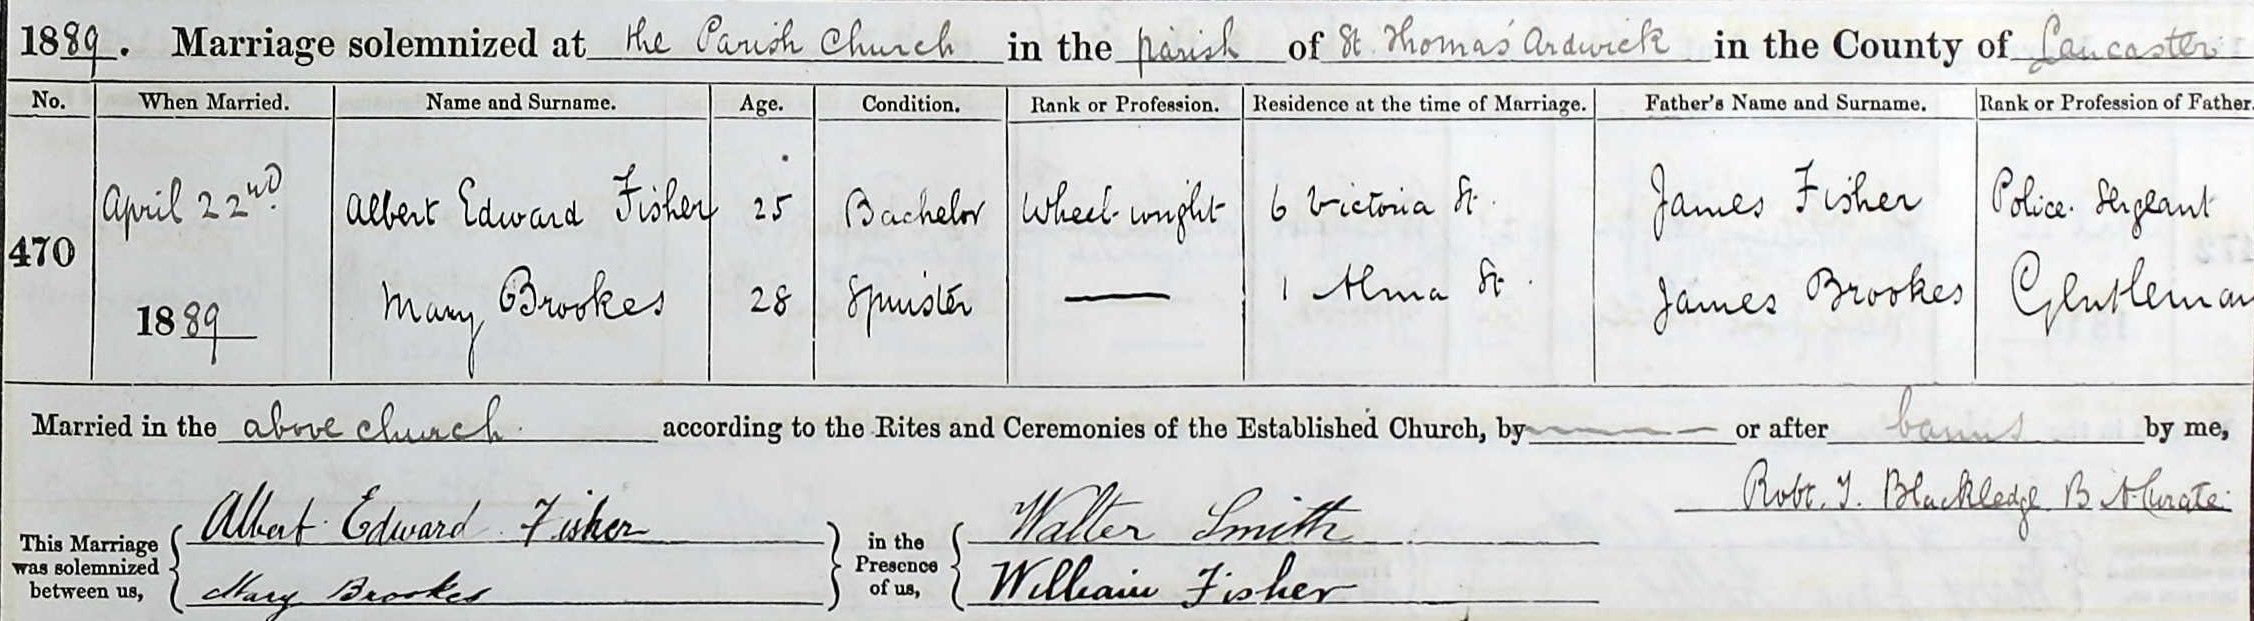 1889. Marriage solemnized at the Parish Church in the parish of St. Thomas' Ardwick in the County of Lancaster
No. When Married. Name and Surname. Age. Condition. Rank or Profession. Residence at the time of Marriage. Father's Name and Surname. Rank or Profession of Father.
April 22nd. Albert Edward Fisher 25 Bachelor Wheel-wright 6 Victoria St. James Fisher Police Sergeant
470
1889 Mary Brookes 28 Spinster — 1 Alma St. James Brookes Gentleman
Married in the above church. according to the Rites and Ceremonies of the Established Church, by — or after banns by me,
Robt. T. Blackledge B A Curate.
Albert Edward Fisher Walter Smith
This Marriage was solemnized between us, in the Presence of us,
Mary Brookes William Fisher